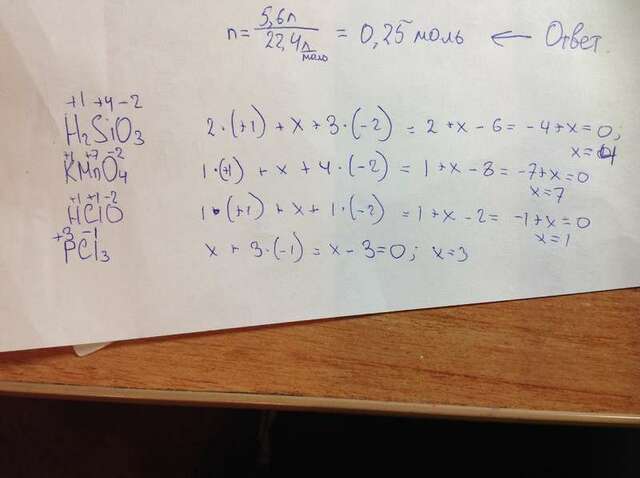 n = 5,6л / 22,4 л/моль = 0,25 моль ← Ответ
+1 +4 -2
H₂SiO₃ 2·(+1) + x + 3·(-2) = 2 + x - 6 = -4 + x = 0,
x = 4
+1 +7 -2
KMnO₄ 1·(+1) + x + 4·(-2) = 1 + x - 8 = -7 + x = 0
x = 7
+1 +1 -2
HClO 1·(+1) + x + 1·(-2) = 1 + x - 2 = -1 + x = 0
x = 1
+3 -1
PCl₃ x + 3·(-1) = x - 3 = 0; x = 3